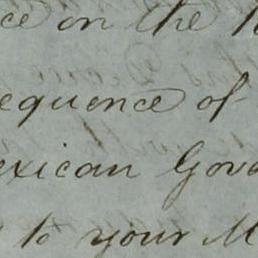 ce on the
equence of
exican Gove
to your M